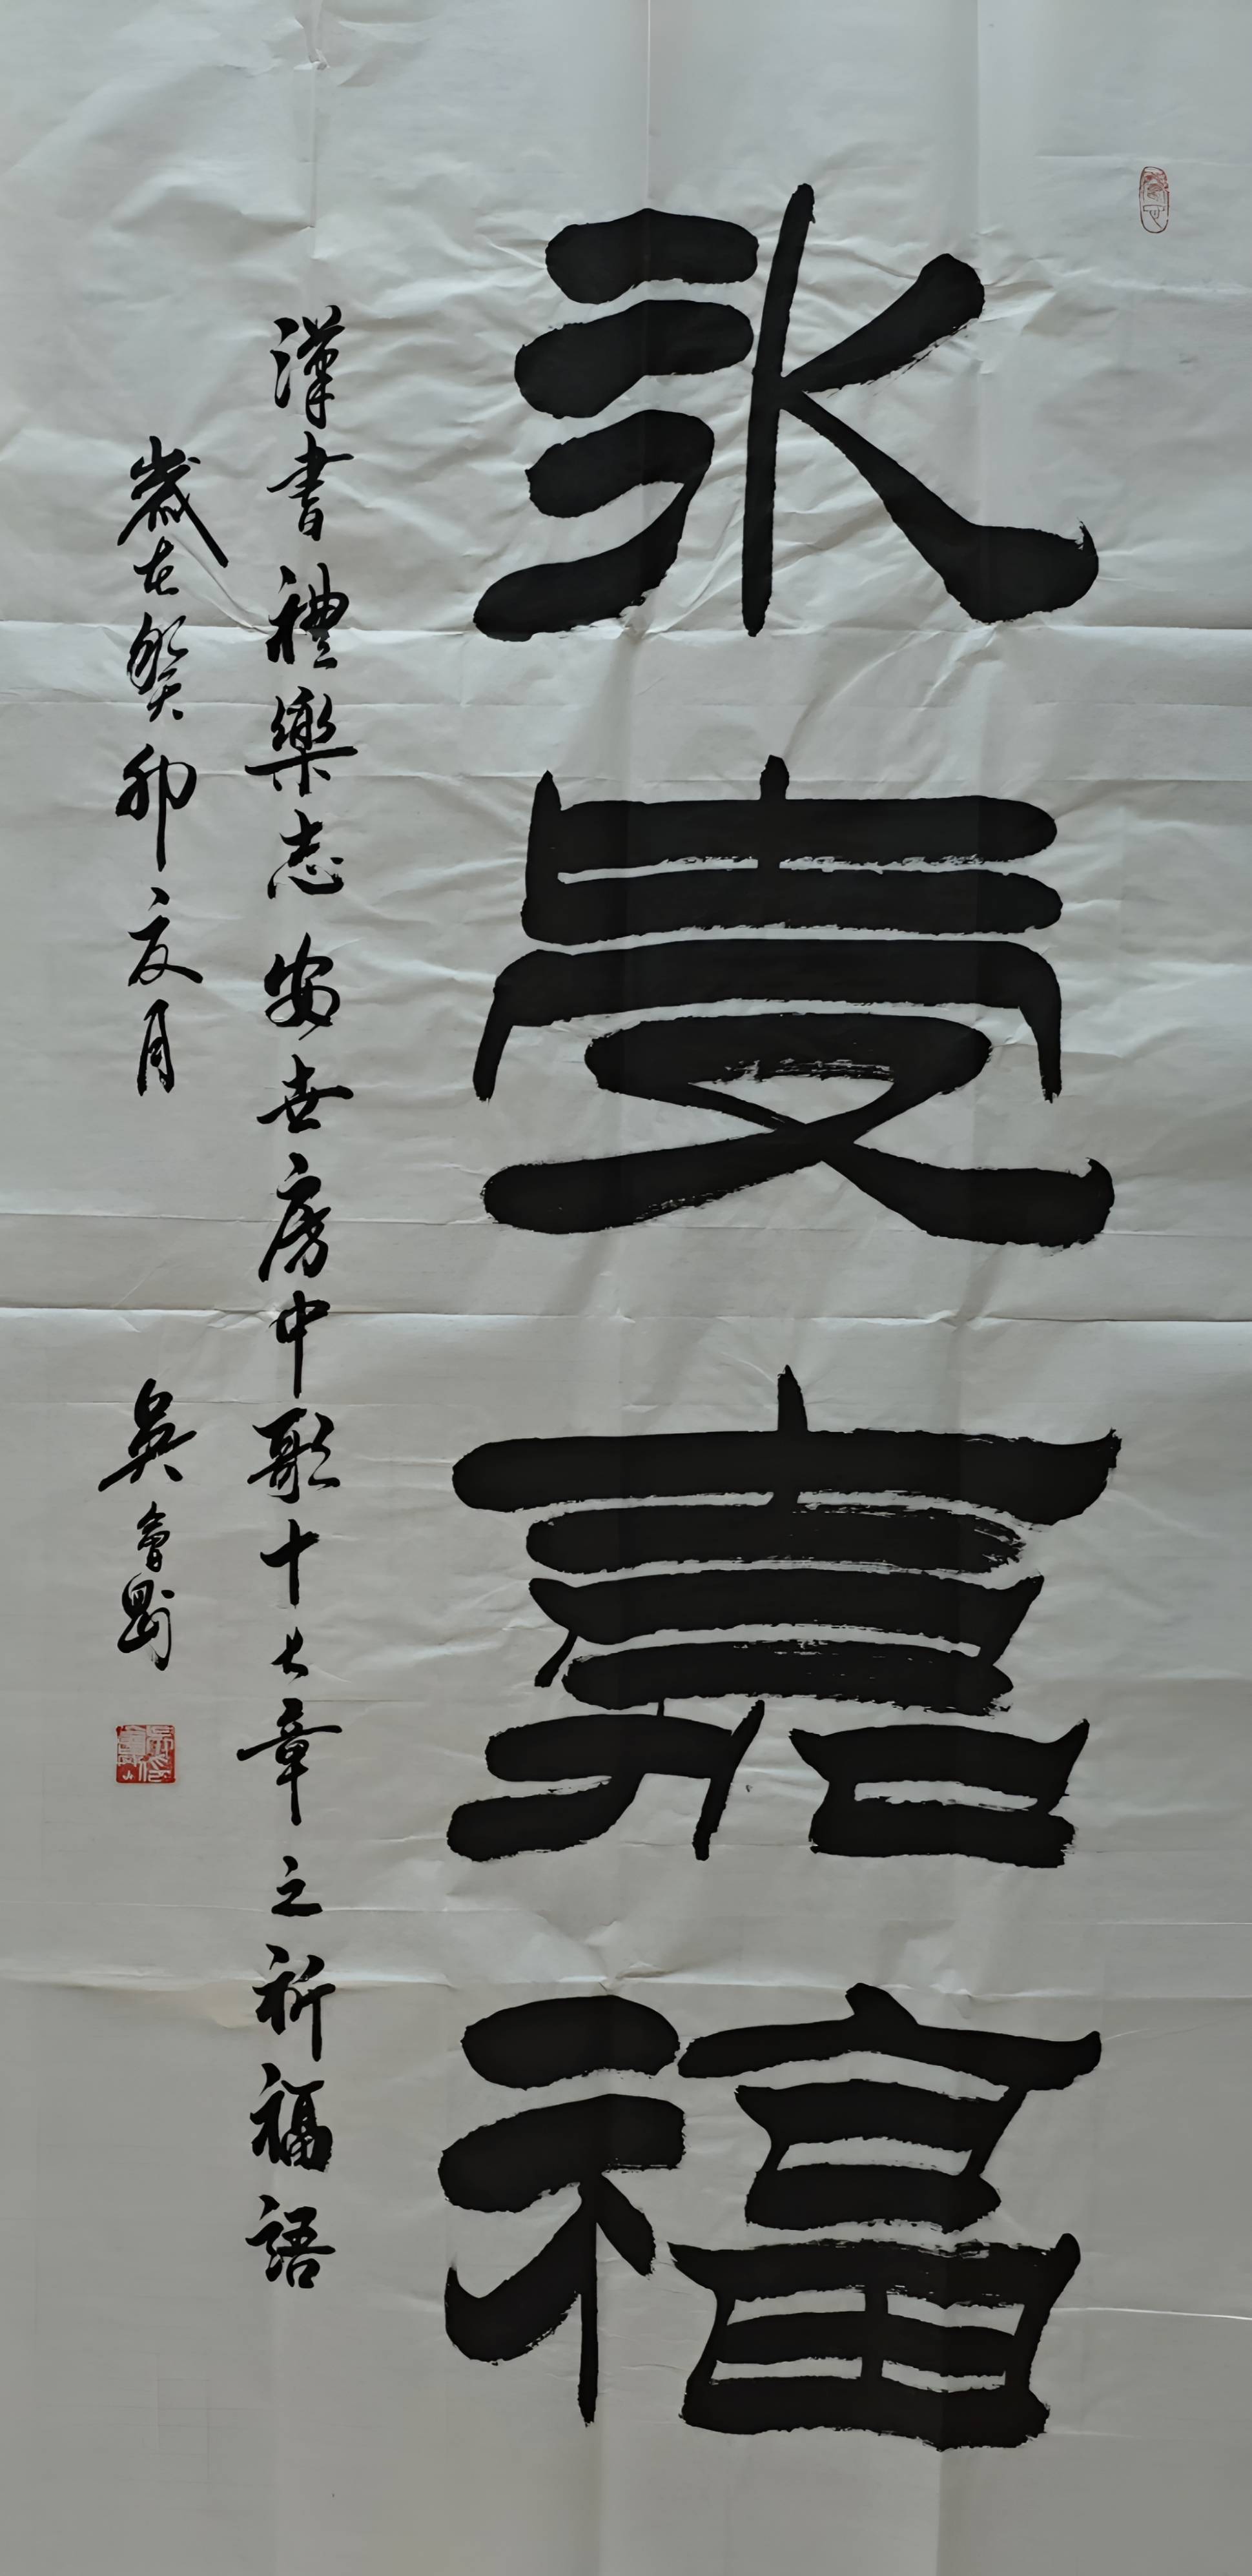 永受嘉福
漢書禮樂志安世房中歌十七章之祈福語
歲在癸卯夏月 吳會剛